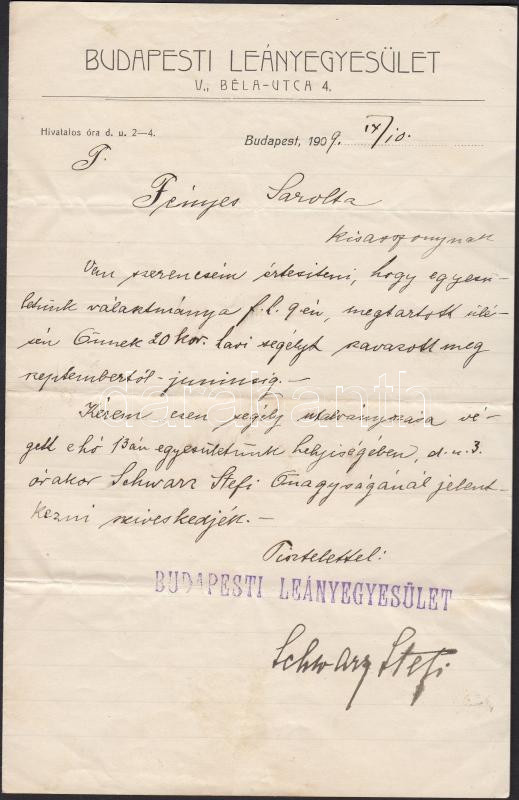 BUDAPESTI LEÁNYEGYESÜLET
V., BÉLA-UTCA 4.
Hivatalos óra d. u. 2—4.
Budapest, 1909. IX/10.
T.
Fényes Sarolta
kisasszonynak
Van szerencsém értesíteni, hogy egyesü-
letünk választmánya f. h. 9-én, megtartott ülé-
sén Önnek 20 kor. havi segélyt szavazott meg
szeptembertől - juniusig. —
Kérem ezen segély utalványozása vé-
gett e hó 13án egyesületünk helyiségében, d. u. 3.
órakor Schwarz Stefi Őnagyságánál jelent-
kezni sziveskedjék. —
Tisztelettel:
BUDAPESTI LEÁNYEGYESÜLET
Schwarz Stefi
darabanth